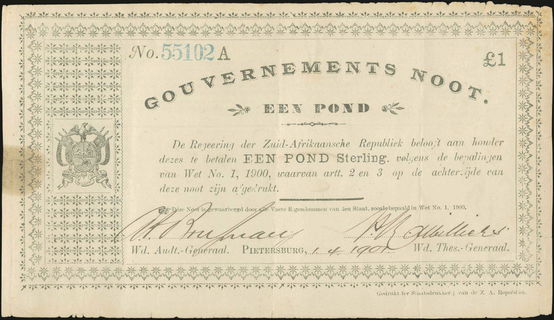 No. 55102 A
£1
GOUVERNEMENTS NOOT.
EEN POND
De Regeering der Zuid-Afrikaansche Republiek belooft aan houder
dezes te betalen EEN POND Sterling, volgens de bepalingen
van Wet No. 1, 1900, waarvan artt. 2 en 3 op de achterzijde van
deze noot zijn afgedrukt.
Deze Noot is gewaarborgd door alle Vaste Eigendommen van den Staat, zooals bepaald in Wet No. 1, 1900.
Wd. Audt.-Generaal. PIETERSBURG, 1.4.1901. Wd. Thes.-Generaal.
Gedrukt ter Staatsdrukkerij van de Z. A. Republiek.